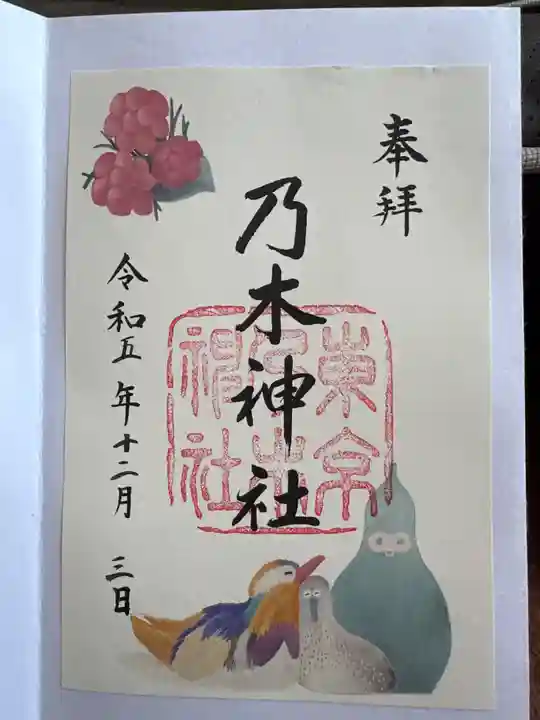 奉拝
乃木神社
東京
乃木
神社
令和五年十二月 三日